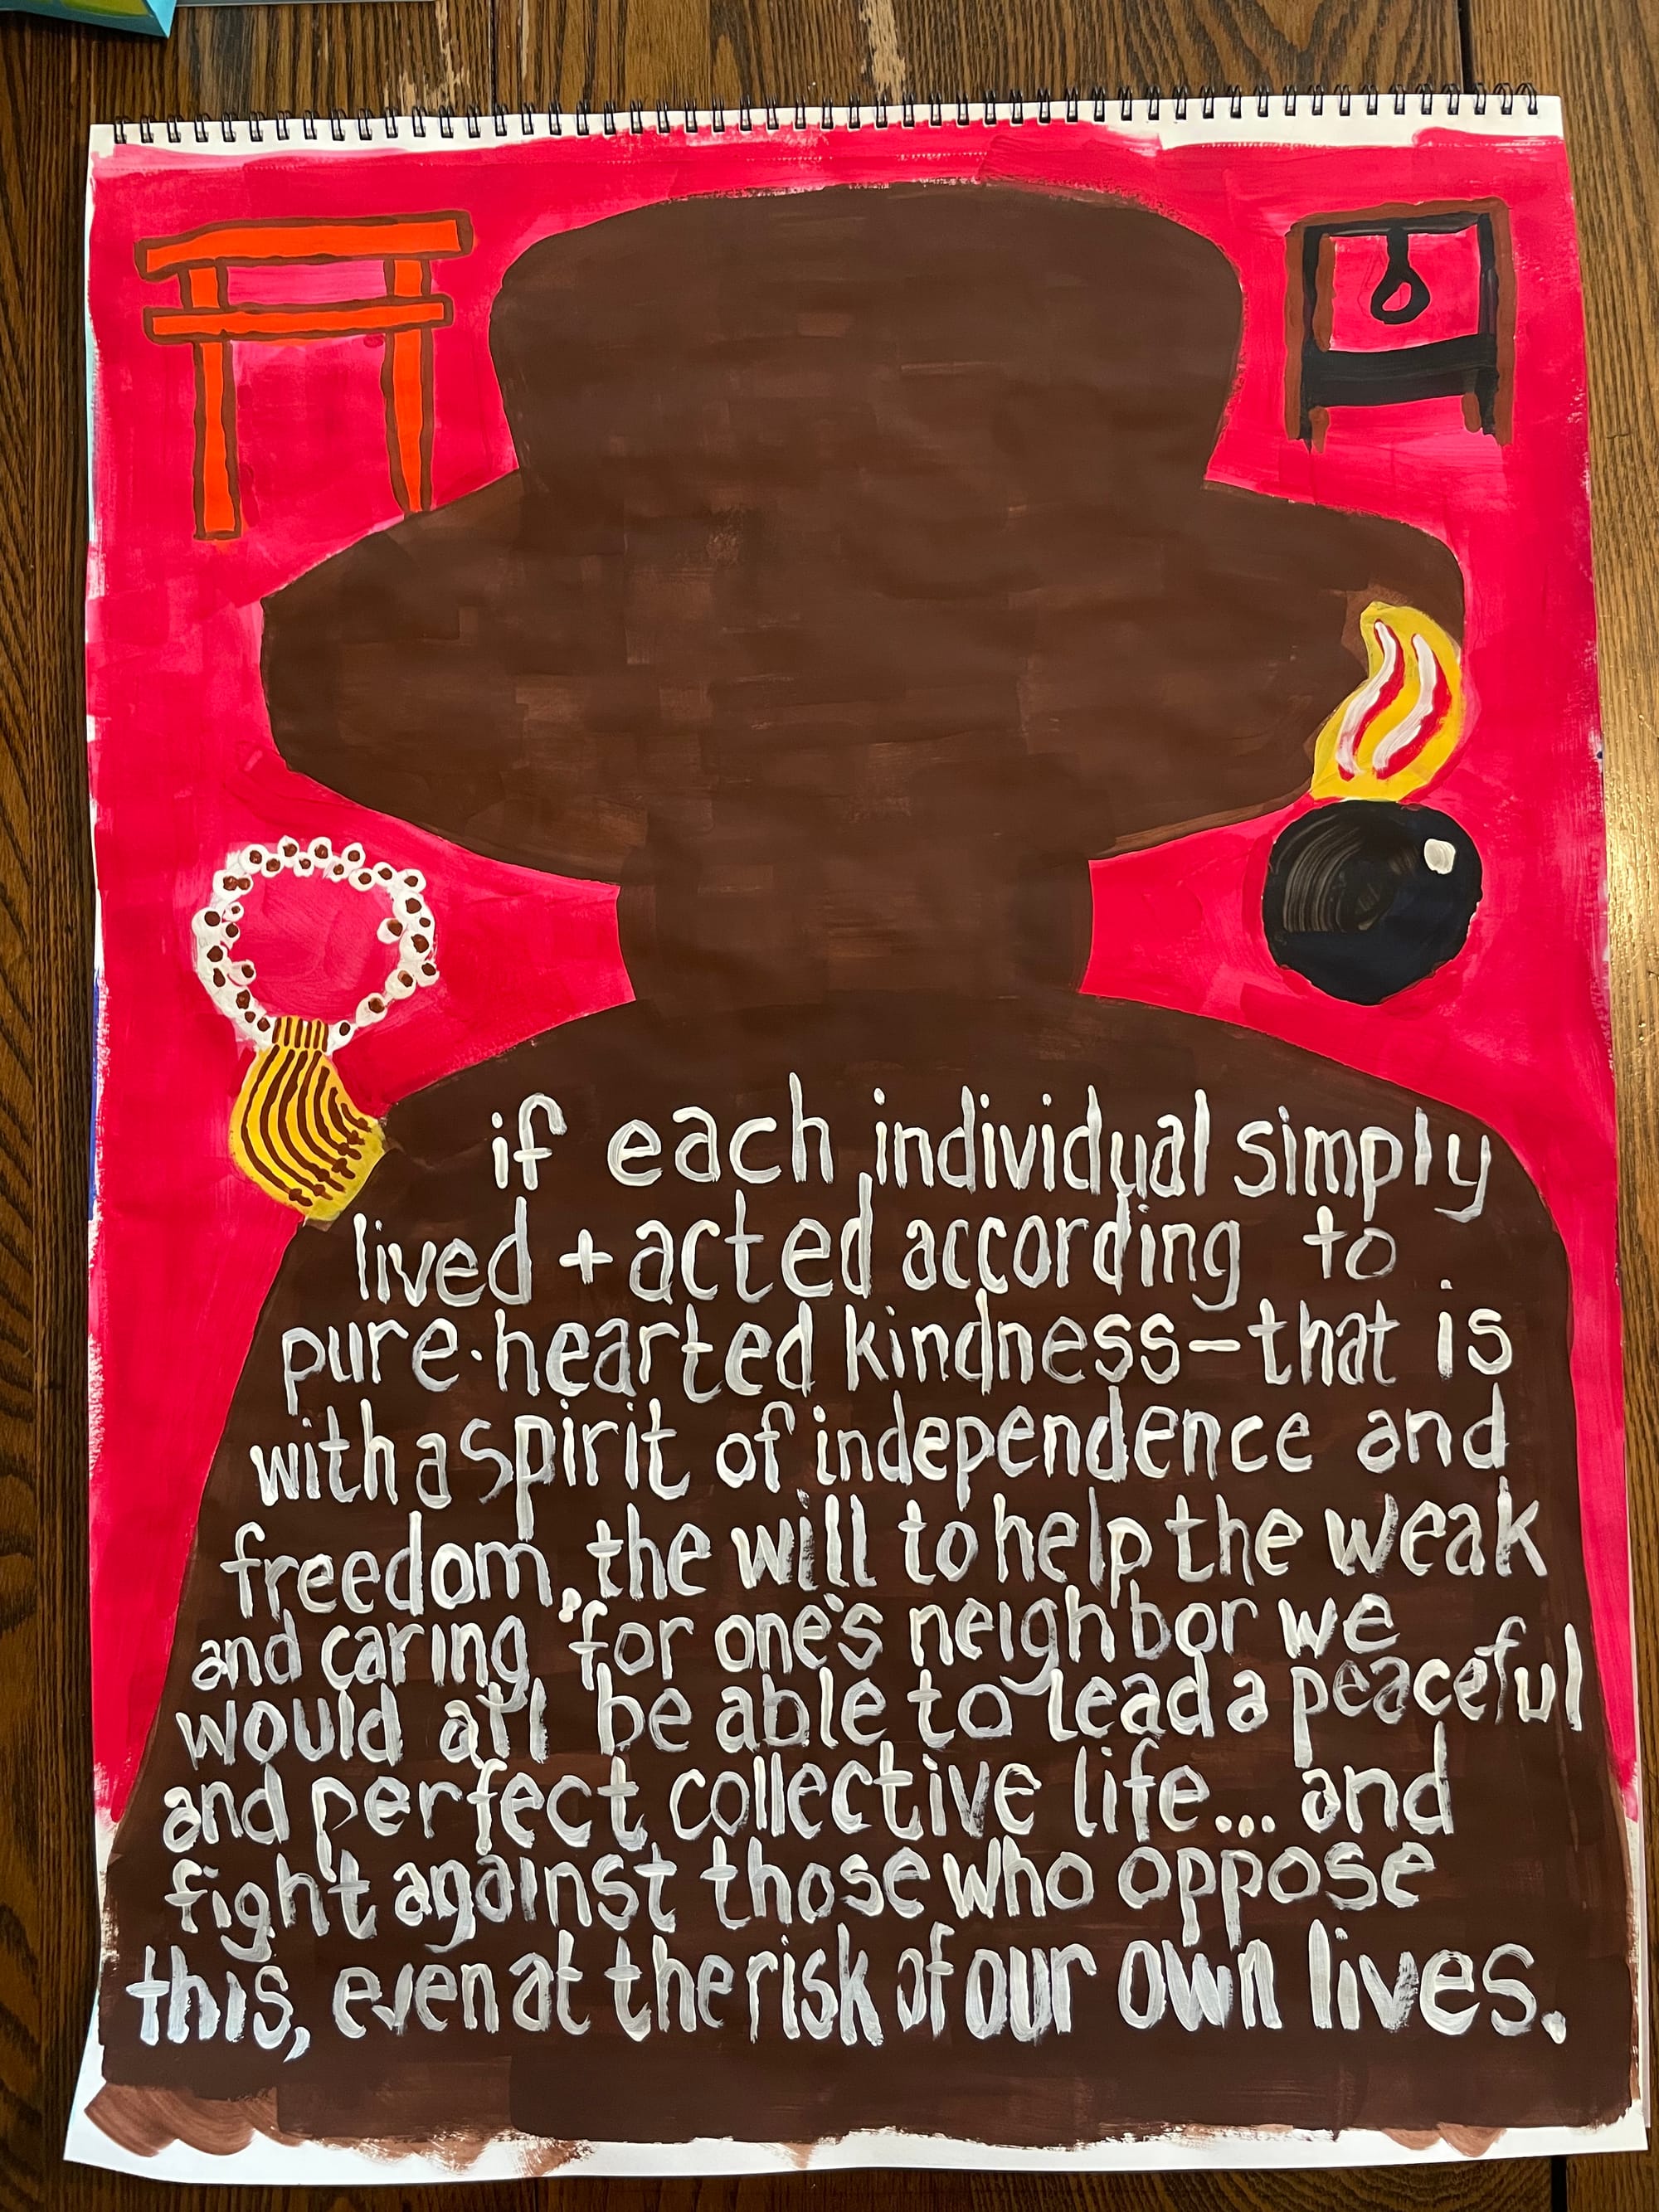 if each individual simply
lived + acted according to
pure-hearted kindness—that is
with a spirit of independence and
freedom, the will to help the weak
and caring for one's neighbor we
would all be able to lead a peaceful
and perfect collective life... and
fight against those who oppose
this, even at the risk of our own lives.